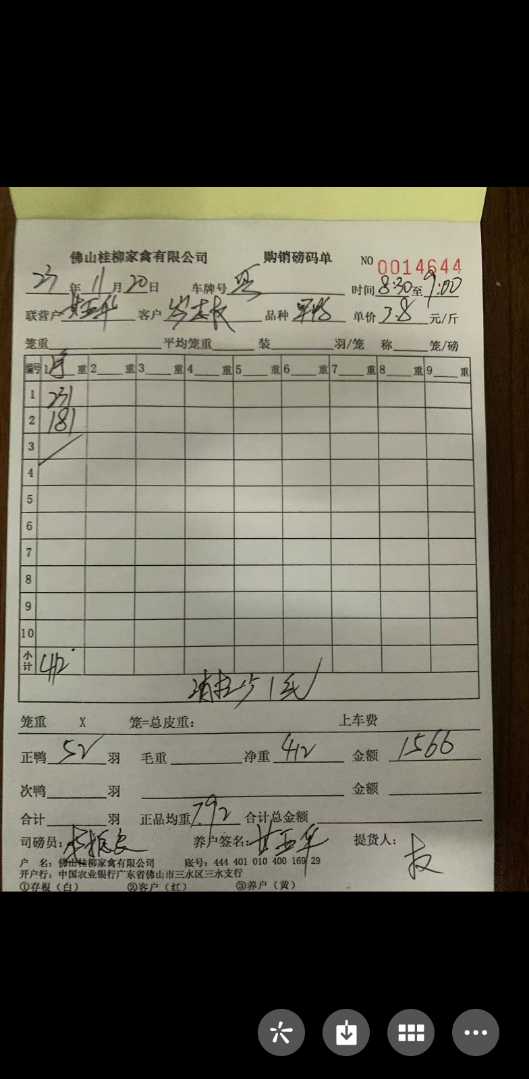 佛山桂柳家禽有限公司 购销磅码单 NO 0014644
23年11月20日 车牌号 时间8:30至9:00
联营户 客户 品种 单价3.8元/斤
笼重 平均笼重 装 羽/笼 称 笼/磅
编号 1 重 2 重 3 重 4 重 5 重 6 重 7 重 8 重 9 重
1 231
2 181
3
4
5
6
7
8
9
10
小计 412
笼重 X 笼=总皮重: 上车费
正鸭52羽 毛重 净重412 金额1566
次鸭 羽 金额
合计 羽 正品均重7.92 合计总金额
司磅员: 养户签名: 提货人:
户 名: 佛山桂柳家禽有限公司 账号: 444 401 010 400 169 29
开户行: 中国农业银行广东省佛山市三水区三水支行
①存根(白) ②客户(红) ③养户(黄)